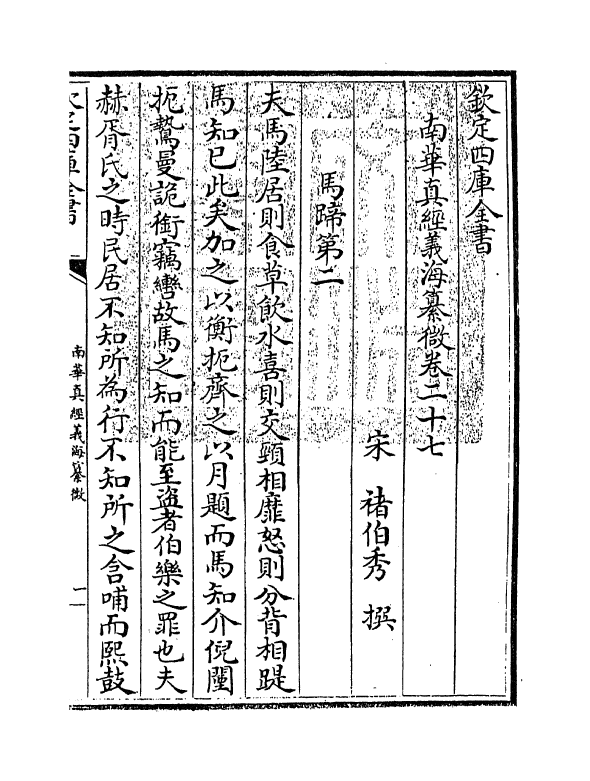 欽定四庫全書
南華真經義海纂微卷二十七
宋　褚伯秀　撰
馬蹄第二
夫馬陸居則食草飲水喜則交頸相靡怒則分背相踶
馬知已此矣加之以衡扼齊之以月題而馬知介倪闉
扼鷙曼詭銜竊轡故馬之知而能至盜者伯樂之罪也夫
赫胥氏之時民居不知所為行不知所之含哺而熙鼓
欽定四庫全書
南華真經義海纂微